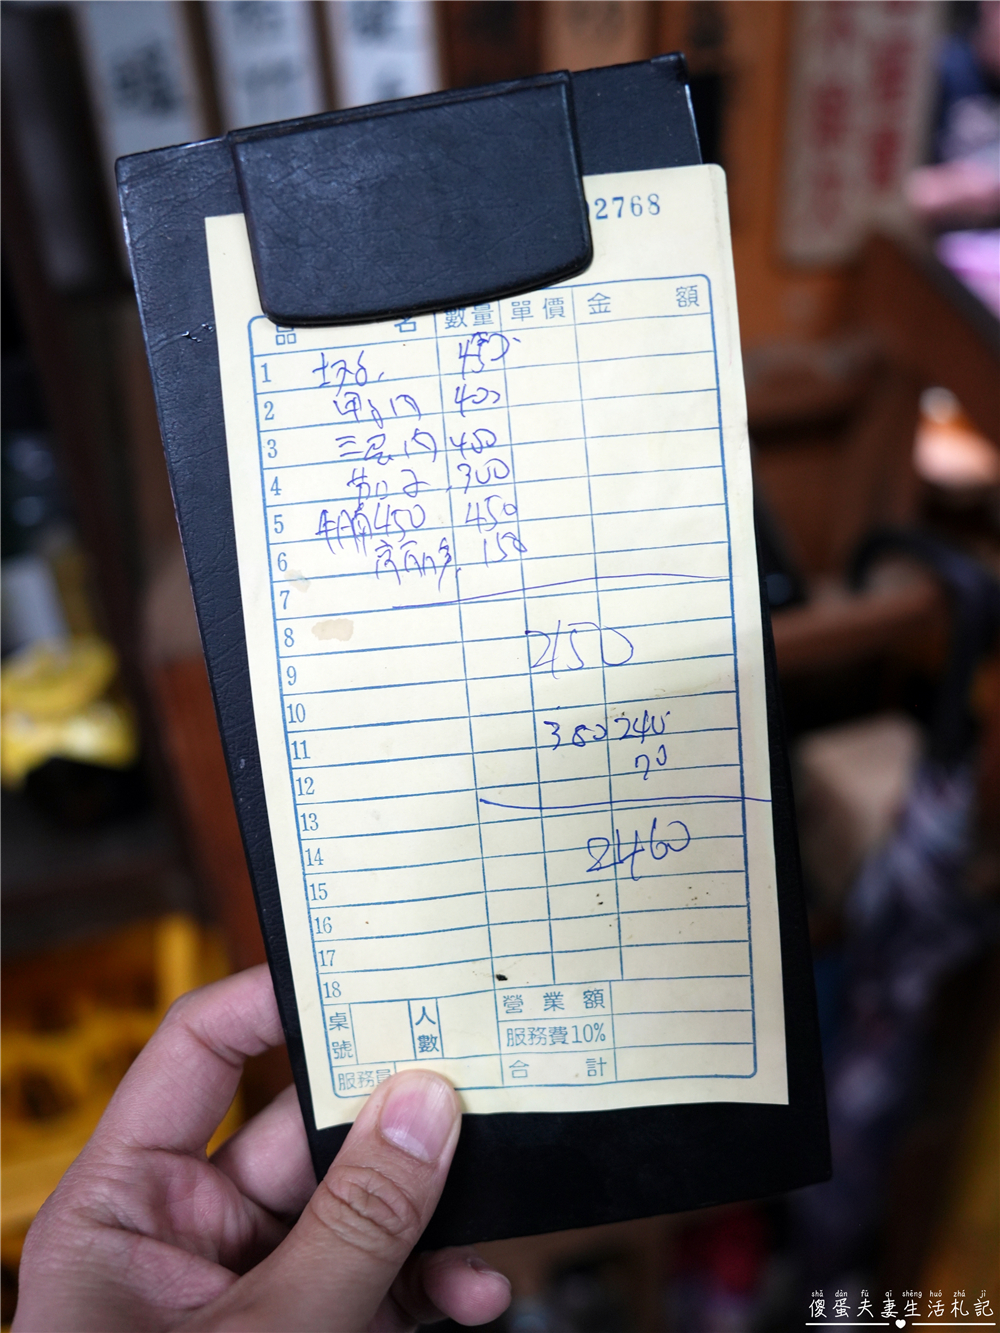 2768
品名 數量 單價 金額
1 450
2 400
3 三層肉 400
4 300
5 牛腩450 450
6 高麗菜 150
7
8
9 2150
10
11 380 240
12 70
13
14 2460
15
16
17
18
桌號 人數 營業額
服務費10%
服務員 合計
shǎ dàn fū qī shēng huó zhá jì
傻蛋夫妻生活札記